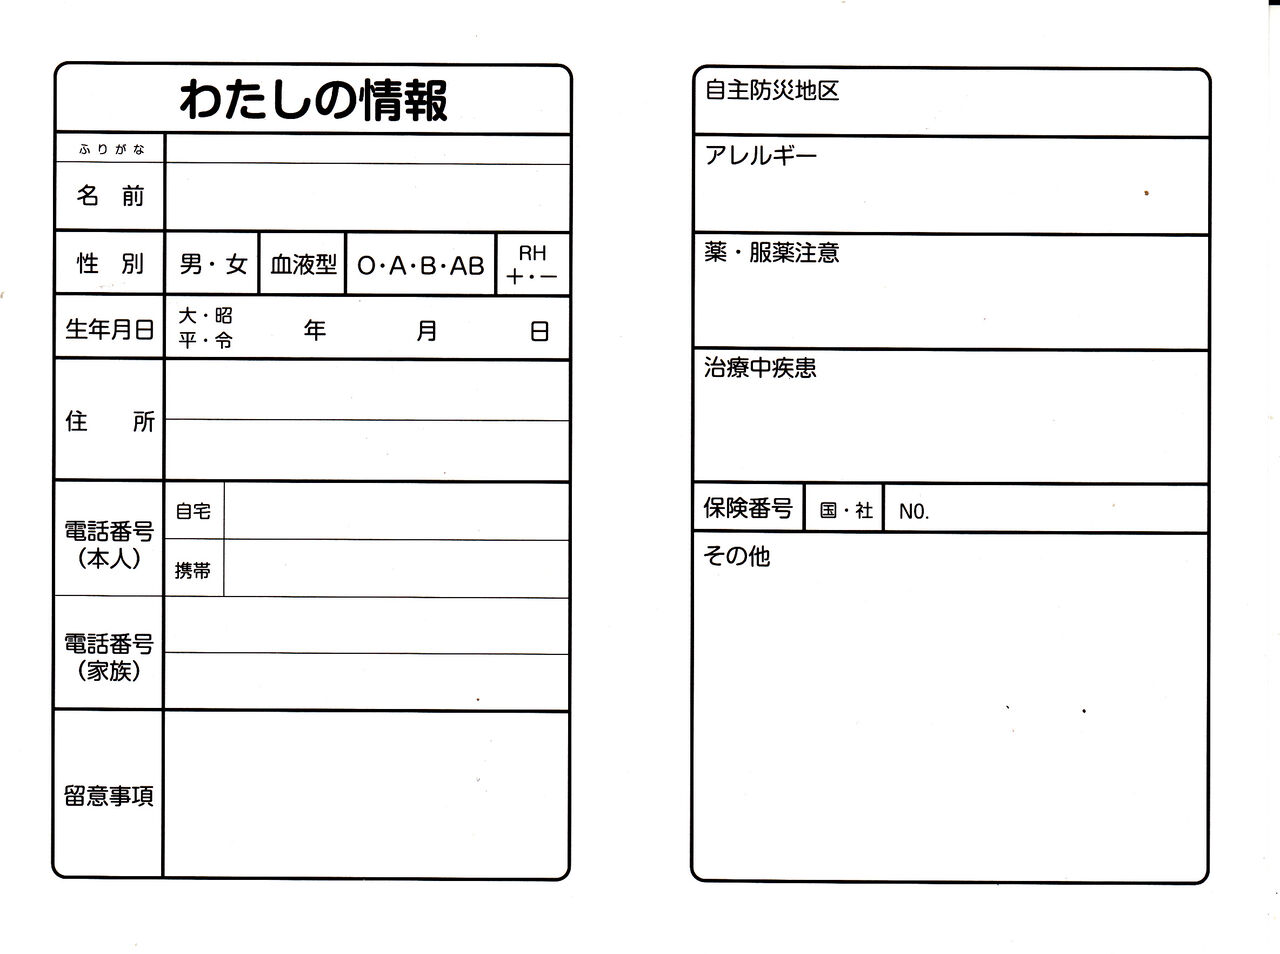 わたしの情報
ふりがな
名 前
性 別 男・女 血液型 O・A・B・AB RH +・−
生年月日 大・昭 平・令 年 月 日
住 所
電話番号
(本人)
自宅
携帯
電話番号
(家族)
留意事項
自主防災地区
アレルギー
薬・服薬注意
治療中疾患
保険番号 国・社 NO.
その他